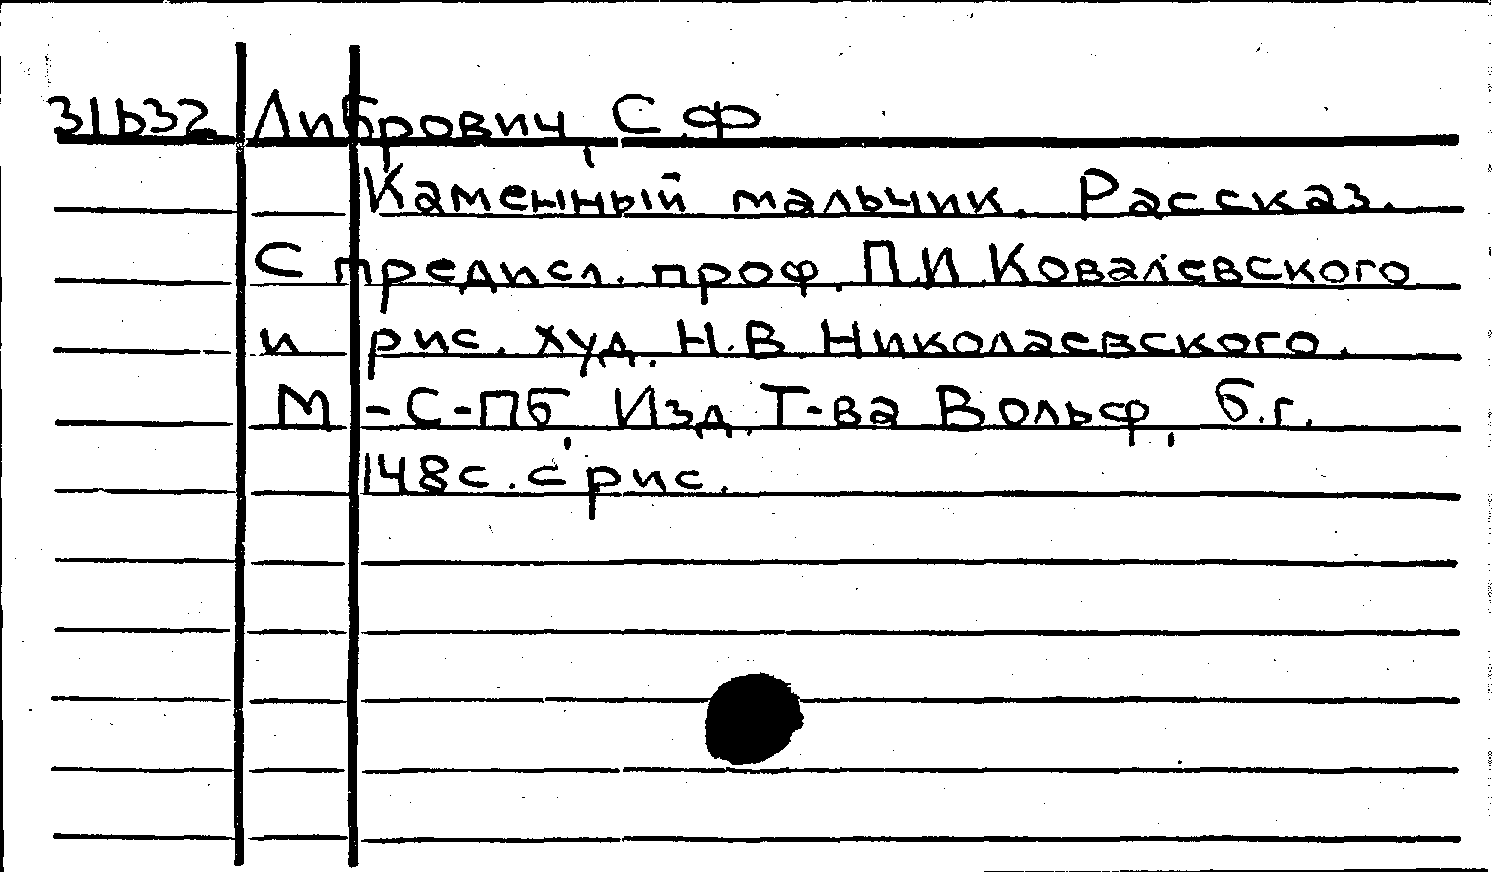 31b32 Либрович, С.Ф
Каменный мальчик. Рассказ.
С предисл. проф. П.И.Ковалевского
и рис. худ. Н.В.Николаевского.
М-С-ПБ, Изд. Т-ва Вольф, б.г.
148с. с рис.